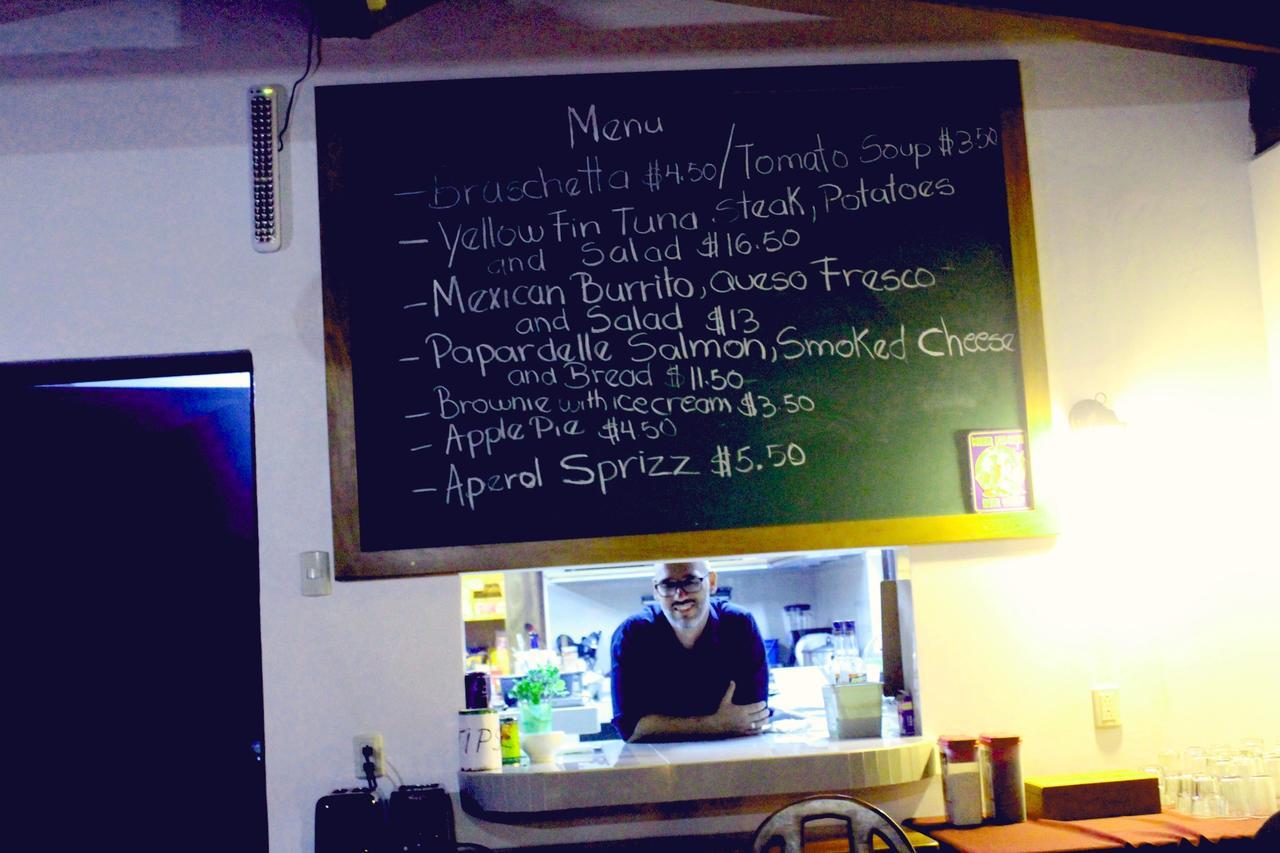 Menu
- bruschetta $4.50/Tomato Soup $3.50
- Yellow Fin Tuna, Steak, Potatoes
and Salad $16.50
- Mexican Burrito, Queso Fresco
and Salad $13
- Papardelle Salmon, Smoked Cheese
and Bread $11.50
- Brownie with ice cream $3.50
- Apple Pie $4.50
- Aperol Sprizz $5.50
TIPS